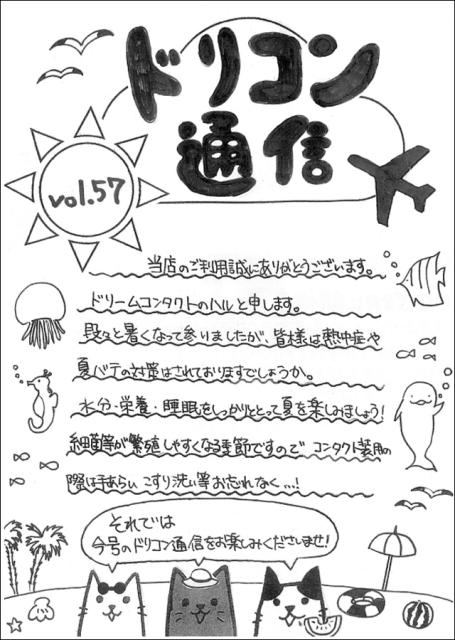 ドリコン
通信
vol.57
当店のご利用誠にありがとうございます。
ドリームコンタクトのハルと申します。
段々と暑くなって参りましたが、皆様は熱中症や
夏バテの対策はされておりますでしょうか。
水分・栄養・睡眠をしっかりととって夏を楽しみましょう!
細菌等が繁殖しやすくなる季節ですので コンタクト装用の
際は手あらい こすり洗い等お忘れなく...!
それでは
今号のドリコン通信をお楽しみくださいませ!